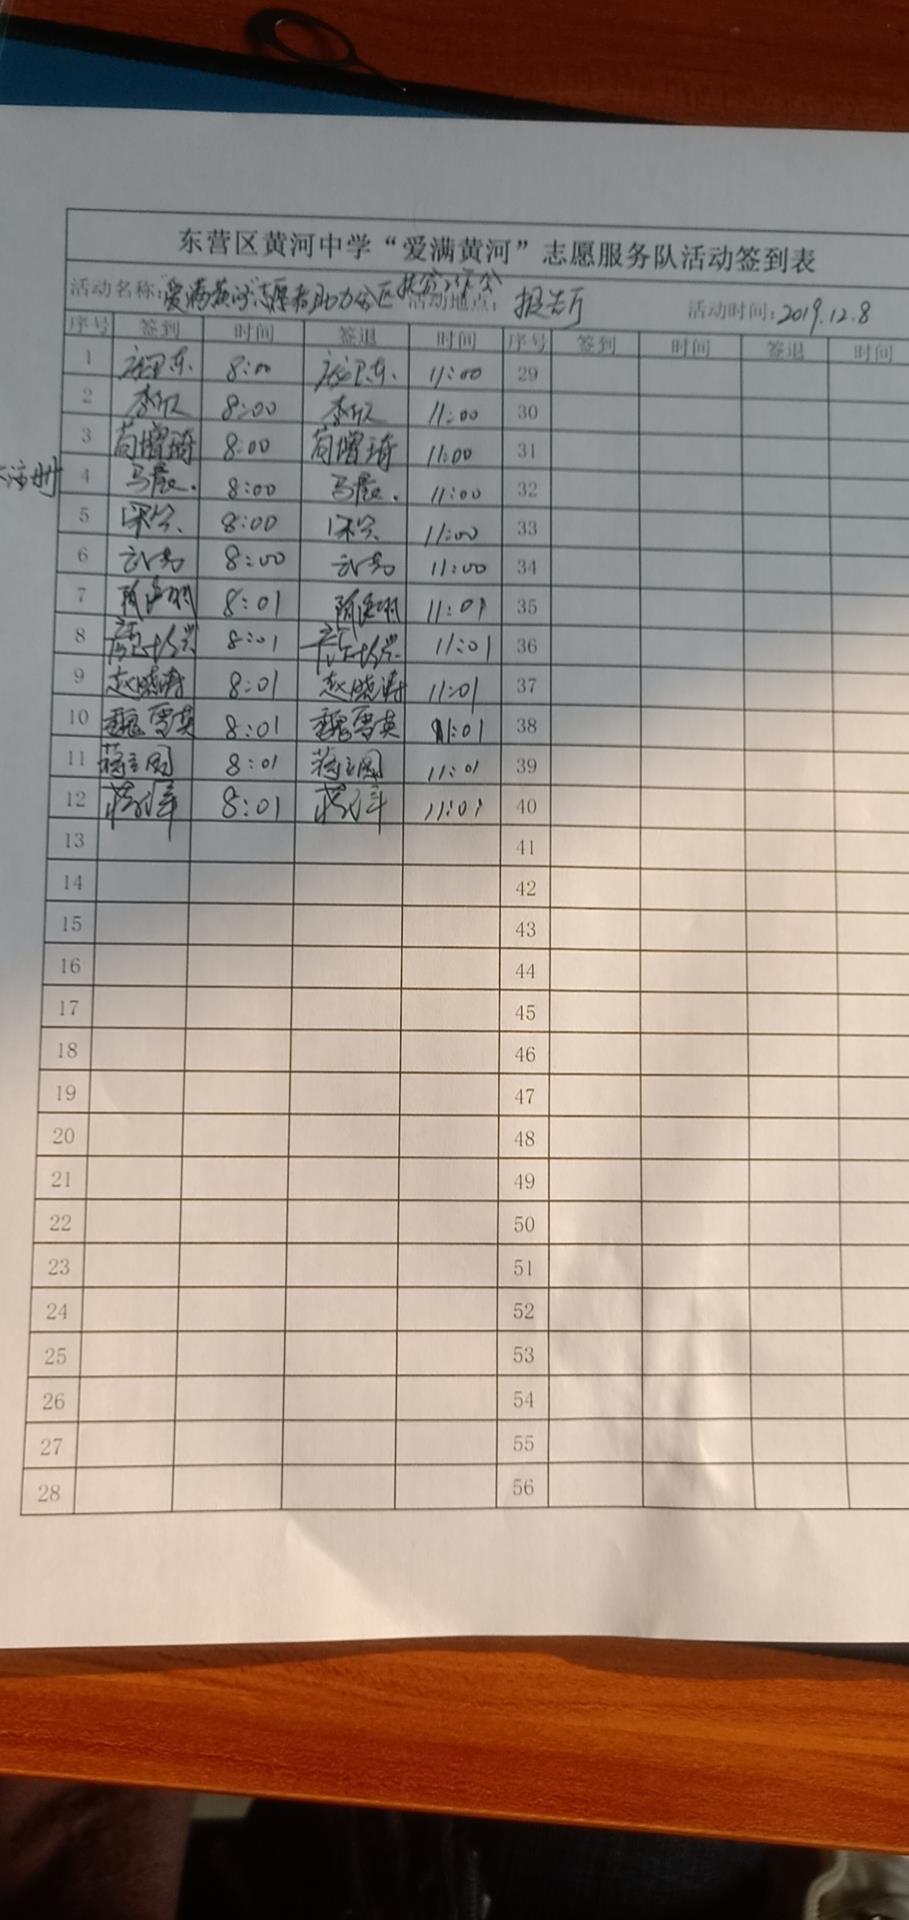 东营区黄河中学“爱满黄河”志愿服务队活动签到表
活动名称:“爱满黄河”志愿者助力全区扶贫工作会 活动地点: 报告厅 活动时间:2019.12.8
序号 签到 时间 签退 时间 序号 签到 时间 签退 时间
1 8:00 11:00 29
2 李欣 8:00 李欣 11:00 30
3 苟增琦 8:00 苟增琦 11:00 31
4 马晨. 8:00 马晨. 11:00 32
5 8:00 11:00 33
6 8:00 11:00 34
7 8:01 11:01 35
8 8:01 11:01 36
9 赵晓涛 8:01 赵晓涛 11:01 37
10 魏雪英 8:01 魏雪英 11:01 38
11 蒋立国 8:01 蒋立国 11:01 39
12 8:01 11:01 40
13 41
14 42
15 43
16 44
17 45
18 46
19 47
20 48
21 49
22 50
23 51
24 52
25 53
26 54
27 55
28 56